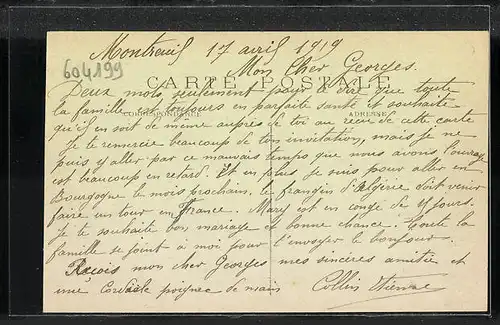 Montreuil 17 avril 1919
604199
Mon cher Georges.
CARTE POSTALE
Deux mots seulement pour te dire que toute
la famille est toujours en parfaite santé et souhaite
CORRESPONDANCE
ADRESSE
qu'il en soit de même auprès de toi au reçu de cette carte
Je te remercie beaucoup de ton invitation, mais je ne
puis y aller par ce mauvais temps que nous avons l'ouvrage
est beaucoup en retard. Et en plus je suis pour aller en
Bourgogne le mois prochain, le frangin d'Algérie doit venir
faire un tour en France. Mary est en congé de jours.
Je te souhaite bon mariage et bonne chance. Toute la
famille se joint à moi pour t'envoyer le bonjour.
Reçois mon cher Georges mes sincères amitiés et
une cordiale poignée de main Collin Etienne